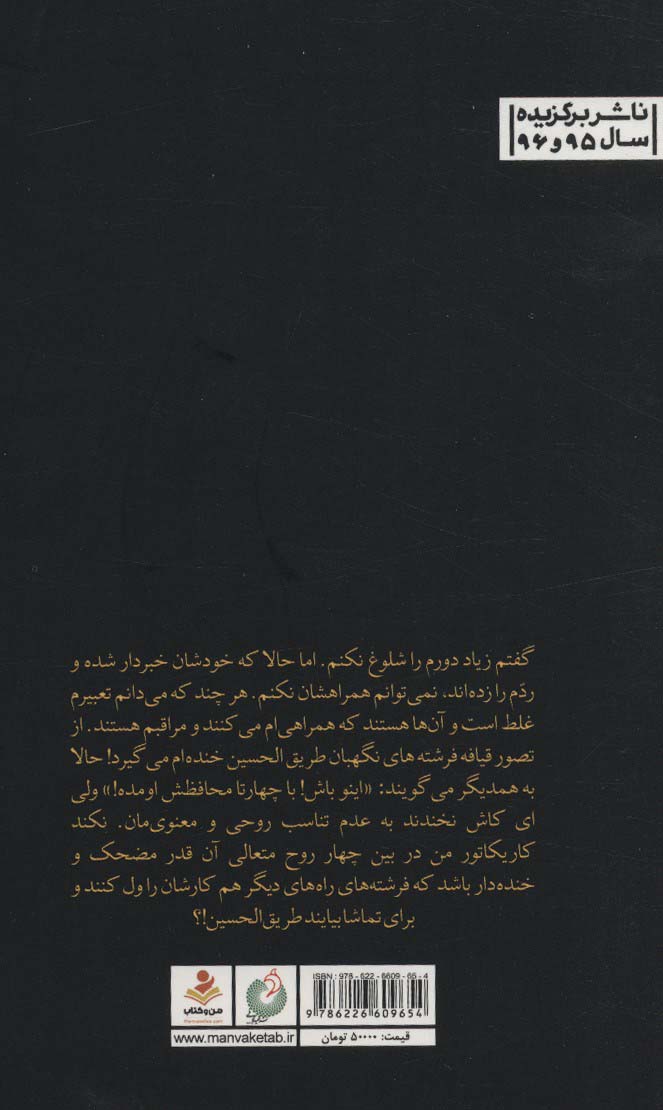 ناشر برگزیده
سال ۹۵ و ۹۶
گفتم زیاد دورم را شلوغ نکنم. اما حالا که خودشان خبردار شده و
ردّم را زده‌اند، نمی‌توانم همراهشان نکنم. هر چند که می‌دانم تعبیرم
غلط است و آن‌ها هستند که همراهی‌ام می‌کنند و مراقبم هستند. از
تصور قیافه فرشته‌های نگهبان طریق الحسین خنده‌ام می‌گیرد! حالا
به همدیگر می‌گویند: «اینو باش! با چهارتا محافظش اومده!» ولی
ای کاش نخندند به عدم تناسب روحی و معنوی‌مان. نکند
کاریکاتور من در بین چهار روح متعالی آن قدر مضحک و
خنده‌دار باشد که فرشته‌های راه‌های دیگر هم کارشان را ول کنند و
برای تماشا بیایند طریق الحسین!؟
ISBN : 978 - 622 - 6609 - 65 - 4
9 786226 609654
من و کتاب
www.manvaketab.ir
قیمت: ۵۰۰۰۰ تومان